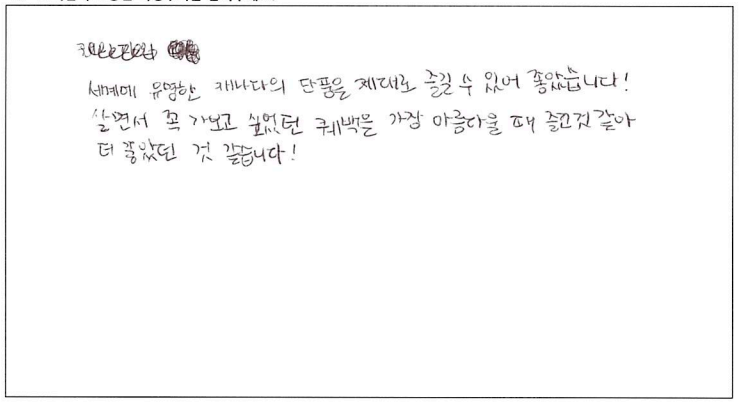 세계에 유명한 캐나다의 단풍을 제대로 즐길 수 있어 좋았습니다!
살면서 꼭 가보고 싶었던 퀘백을 가장 아름다울 때 즐긴것 같아
더 좋았던 것 같습니다!